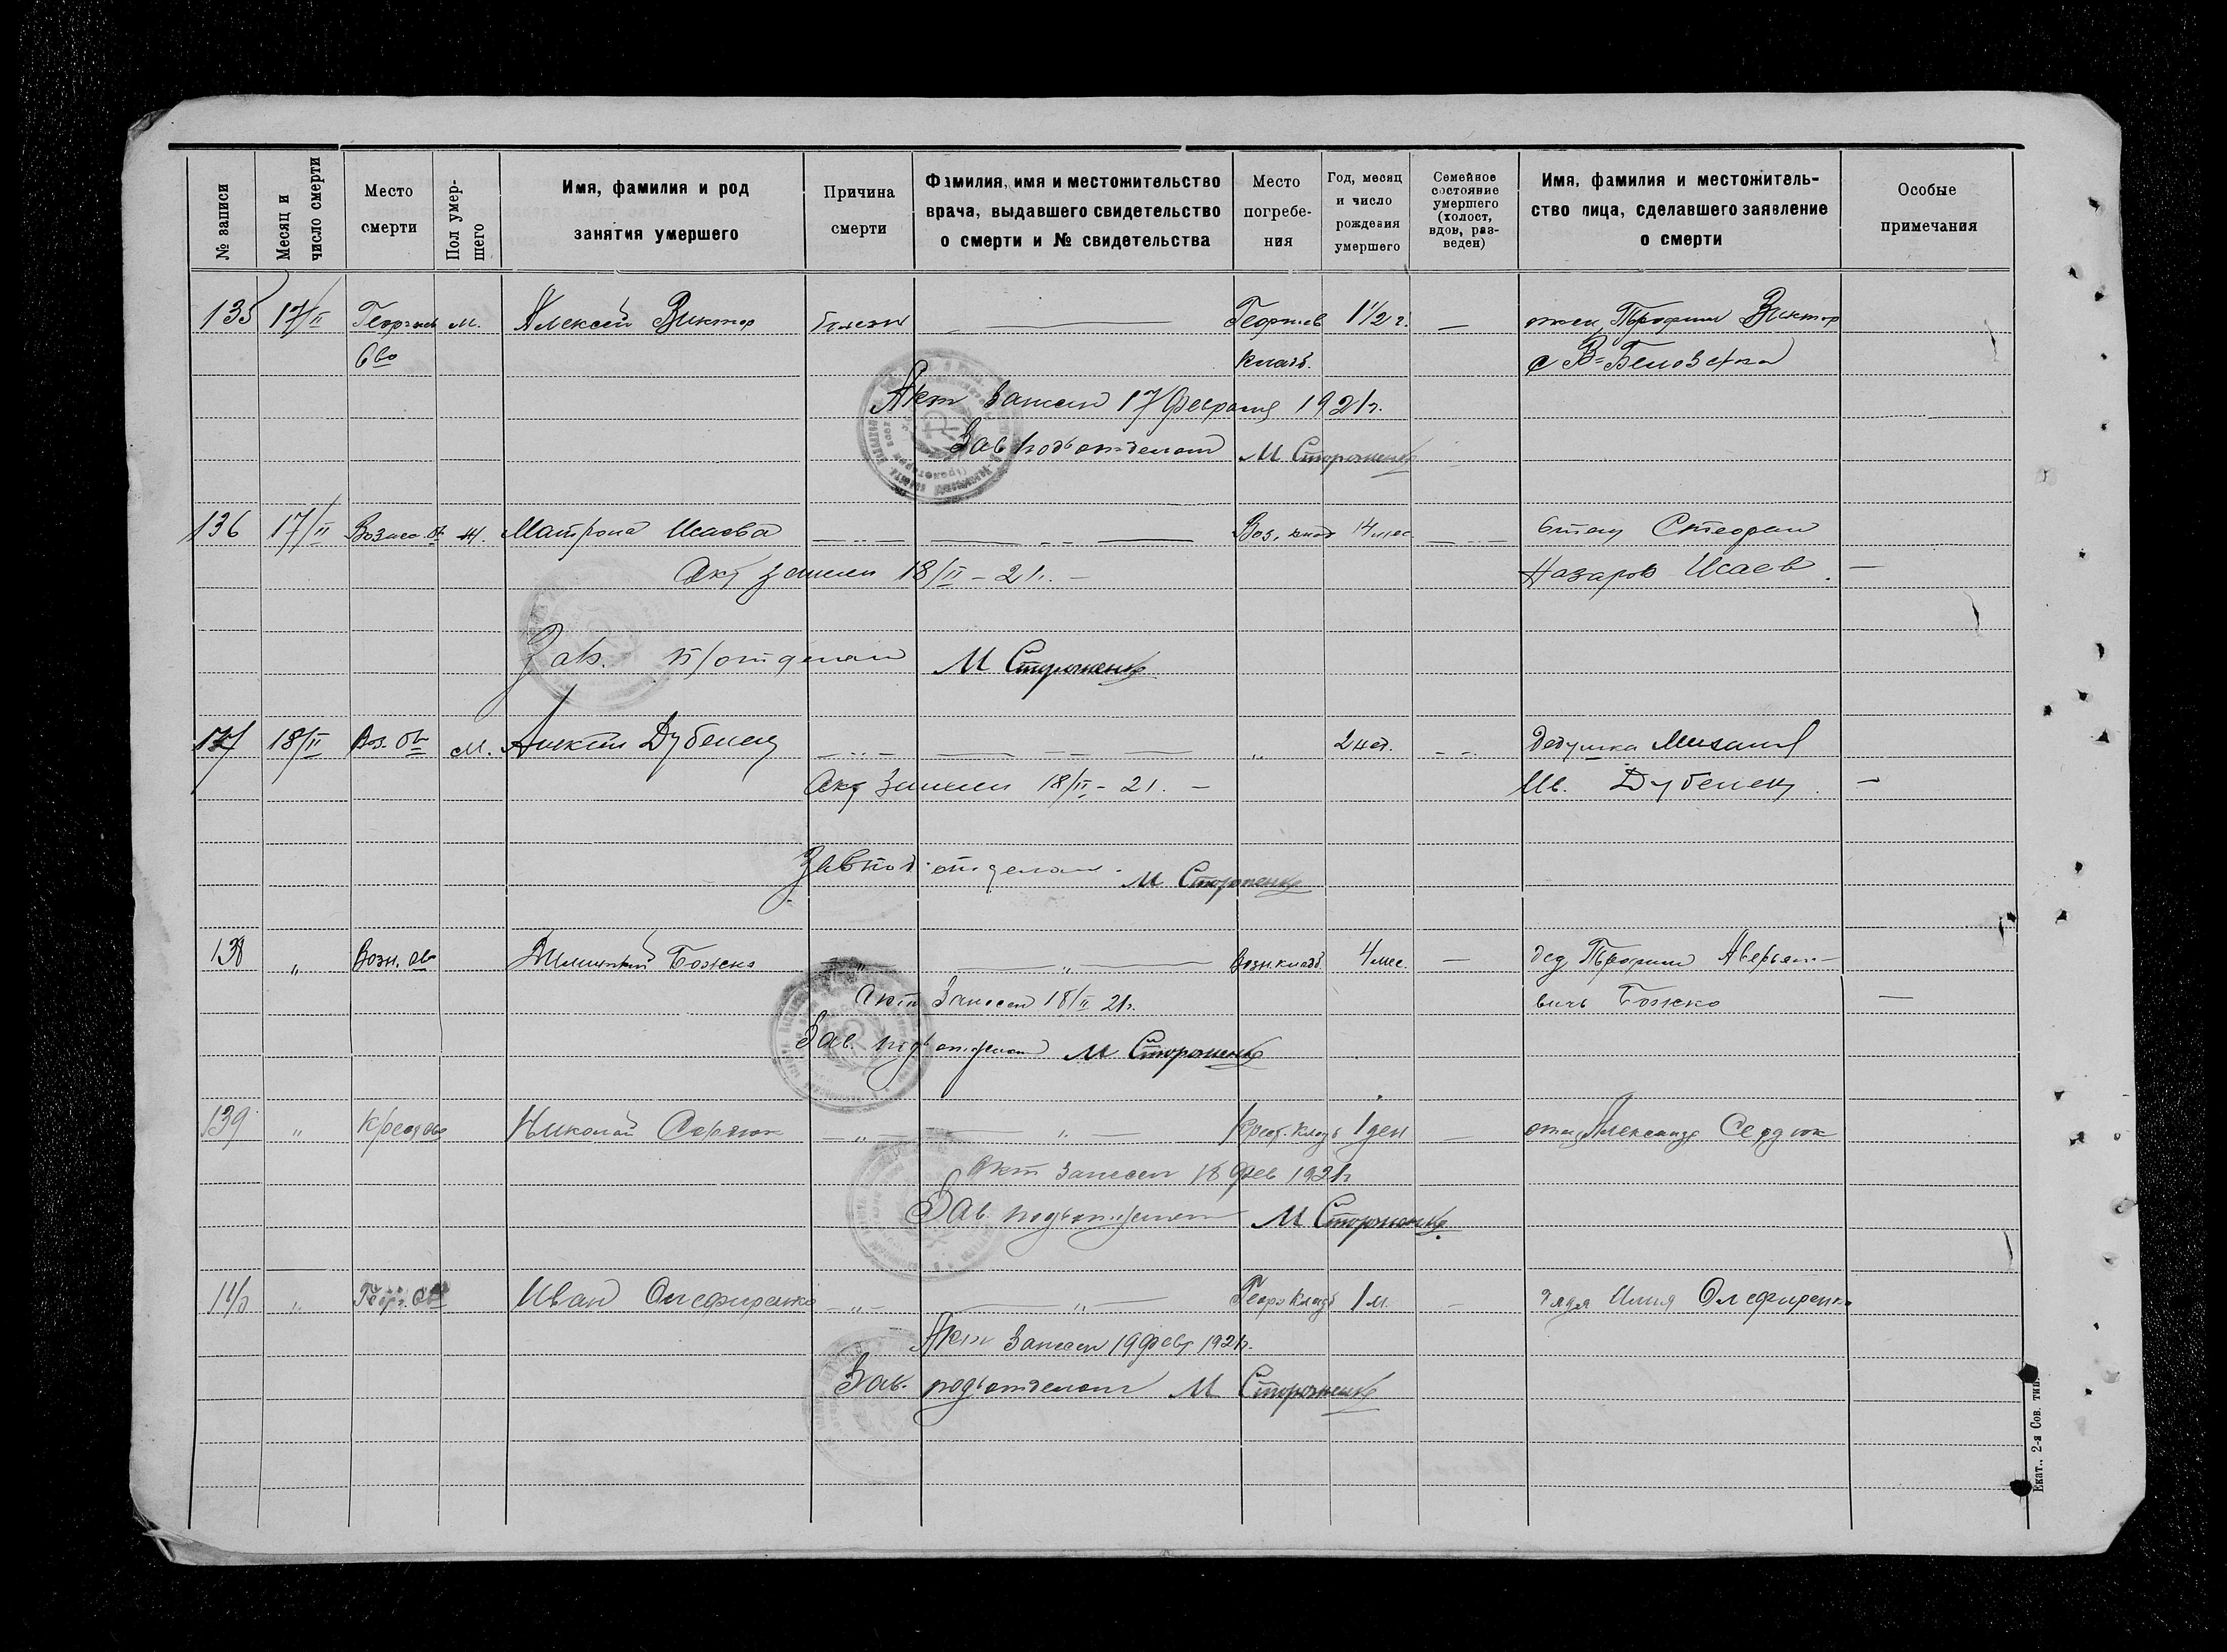 № записи
Месяц и число смерти
Место смерти
Пол умер-
шего
Имя, фамилия и род
занятия умершего
Причина
смерти
Фамилия, имя и местожительство
врача, выдавшего свидетельство
о смерти и № свидетельства
Место
погребе-
ния
Год, месяц
и число
рождения
умершего
Семейное
состояние
умершего
(холост,
вдов, раз-
веден)
Имя, фамилия и местожитель-
ство лица, сделавшего заявление
о смерти
Особые
примечания
135 17/II Георгиев м. Алексей Виктор болезн — Георгиев 1 1/2 г. — Трофим Виктор
Кладб.
Акт занесен 17 февраля 1921г.
Зав подъотделом М Стороженко
136 17/II ж. Матрона Исаева 14 мес. Отец Стефан
Акт занесен 18/II - 21. Назаров Исаев —
Зав. п/отделом М Стороженко
137 18/II Воз. м. Дубенец „ 2 нед. Дедушка Михаил
Акт занесен 18/II - 21. — Ив. Дубенец —
Завпод отделом М Стороженко
138 „ Возн. Димитрий Божко „ Возн. кладб. 4 мес. — дед Трофим Аверьяно-
Акт Занесен 18/II 21г. вичь Божко —
Зав. подъотделом М Стороженко
139 „ Николай Сердюк „ Крест. Кладб 1 ден — отец Александр Сердюк
Акт занесен 18 фев 1921г
Зав. подъотделом М Стороженко
140 „ Геор. Иван Олефиренко „ Геор Кладб 1 м. — дядя Илия Олефиренко
Акт Занесен 19 февр 1921г.
Зав. подъотделом М Стороженко
Екат., 2-я Сов. тип.